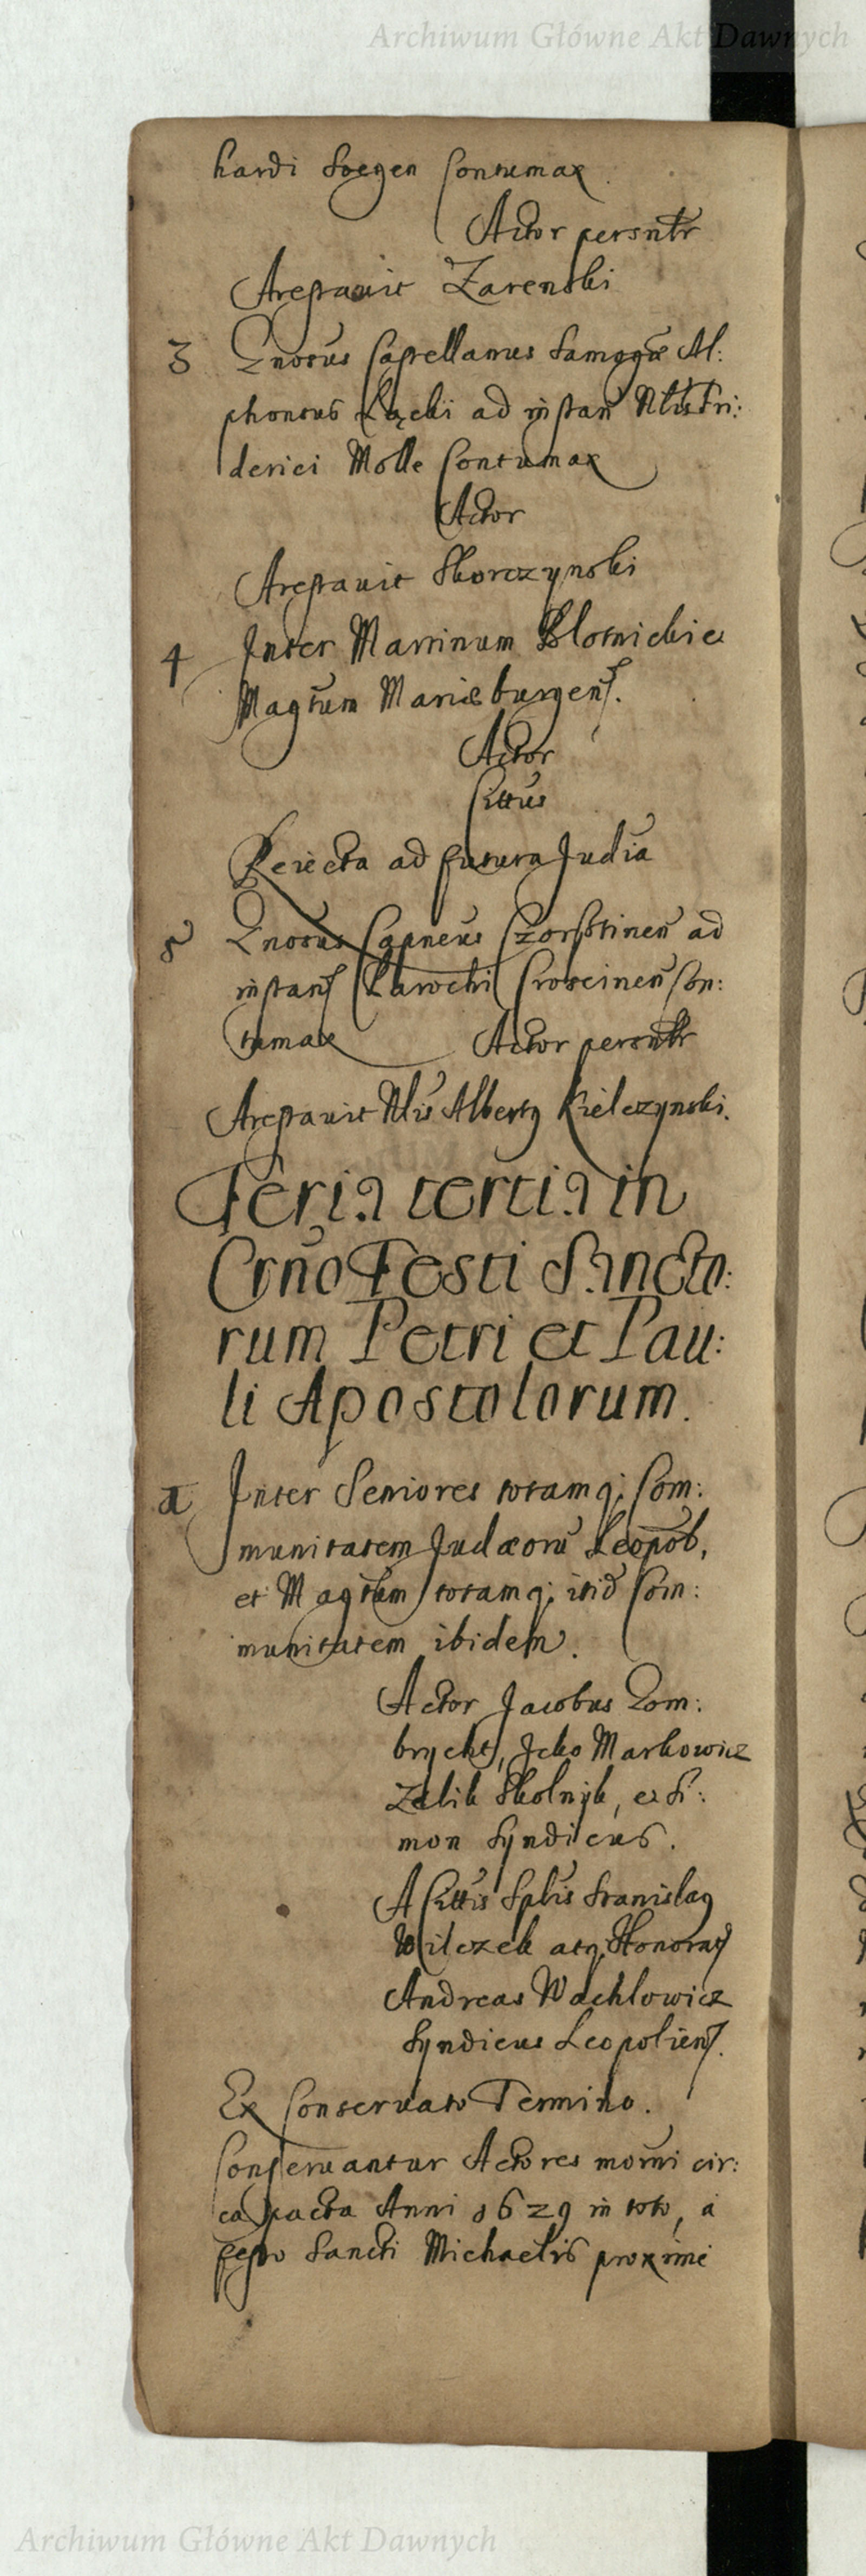 Archiwum Główne Akt Dawnych
hardi Soegen Contumax.
Actor persnlr
Arestavit Zarenski
3 Gnosus Castellanus Samogiæ Al:
phonsus Lącki ad instan Nlis Fri:
derici Molle Contumax
Actor
Arestavit Skorczynski
4 Inter Martinum Blotnicki et
Magrum Marieburgen.
Actor
Cittus
Reiecta ad futura Judia
5 Gnosus Capneus Czorstinen ad
instan Parochi Croscinen Con:
tumax Actor persnlr
Arestavit Nlis Alberty Kielczynski.
Feria tertia in
Crno Festi Sancto:
rum Petri et Pau:
li Apostolorum.
a Inter Seniores totamq; Com:
munitatem Judæoru Leopob,
et Magrum totamq; itid Com:
munitatem ibidem.
Actor Jacobus Gom:
brycht, Icko Markowicz
Zelik Skolnyk, et Si:
mon Syndicus.
A Cittis Splis Stanislaq
Wilczek atq; Honorat
Andreas Wachlowicz
Syndicus Leopolien.
Ex Conservato Termino.
Conservantur Actores moni cir:
ca pacta Anni 1629 in toto, a
festo Sancti Michaelis proxime
Archiwum Główne Akt Dawnych